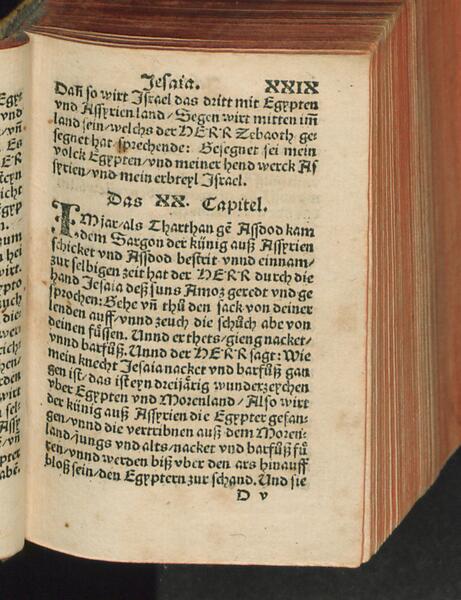 Jesaia. XXIX
Dañ so wirt Israel das dritt mit Egypten
vnd Assyrien land / Segen wirt mitten im̃
land sein / welchs der HERR Zebaoth ge-
segnet hat sprechende: Gesegnet sei mein
volck Egypten / vnd meiner hend werck As
syrien / vnd mein erbteyl Israel.
Das XX. Capitel.
IM jar / als Tharthan gẽ Assdod kam
dem Sargon der künig auß Assyrien
schicket vnd Assdod bestrit vnnd einnam /
zur selbigen zeit hat der HERR durch die
hand Jesaia deß suns Amoz geredt vnd ge
sprochen: Gehe vñ thů den sack von deiner
lenden auff / vnnd zeuch die schůch abe von
deinen füssen. Unnd er thets / gieng nacket /
vnnd barfůß. Unnd der HERR sagt: Wie
mein knecht Jesaia nacket vnd barfůß gan
gen ist / das ist eyn dreijärig wunderzeychen
vber Egypten vnd Morenland / Also wirt
der künig auß Assyrien die Egypter gefan-
gen / vnnd die vertribnen auß dem Moren-
land / jungs vnd alts / nacket vnd barfůß fů
ren / vnnd werden biß vber den ars hinauff
bloß sein / den Egyptern zur schand. Und sie
D v